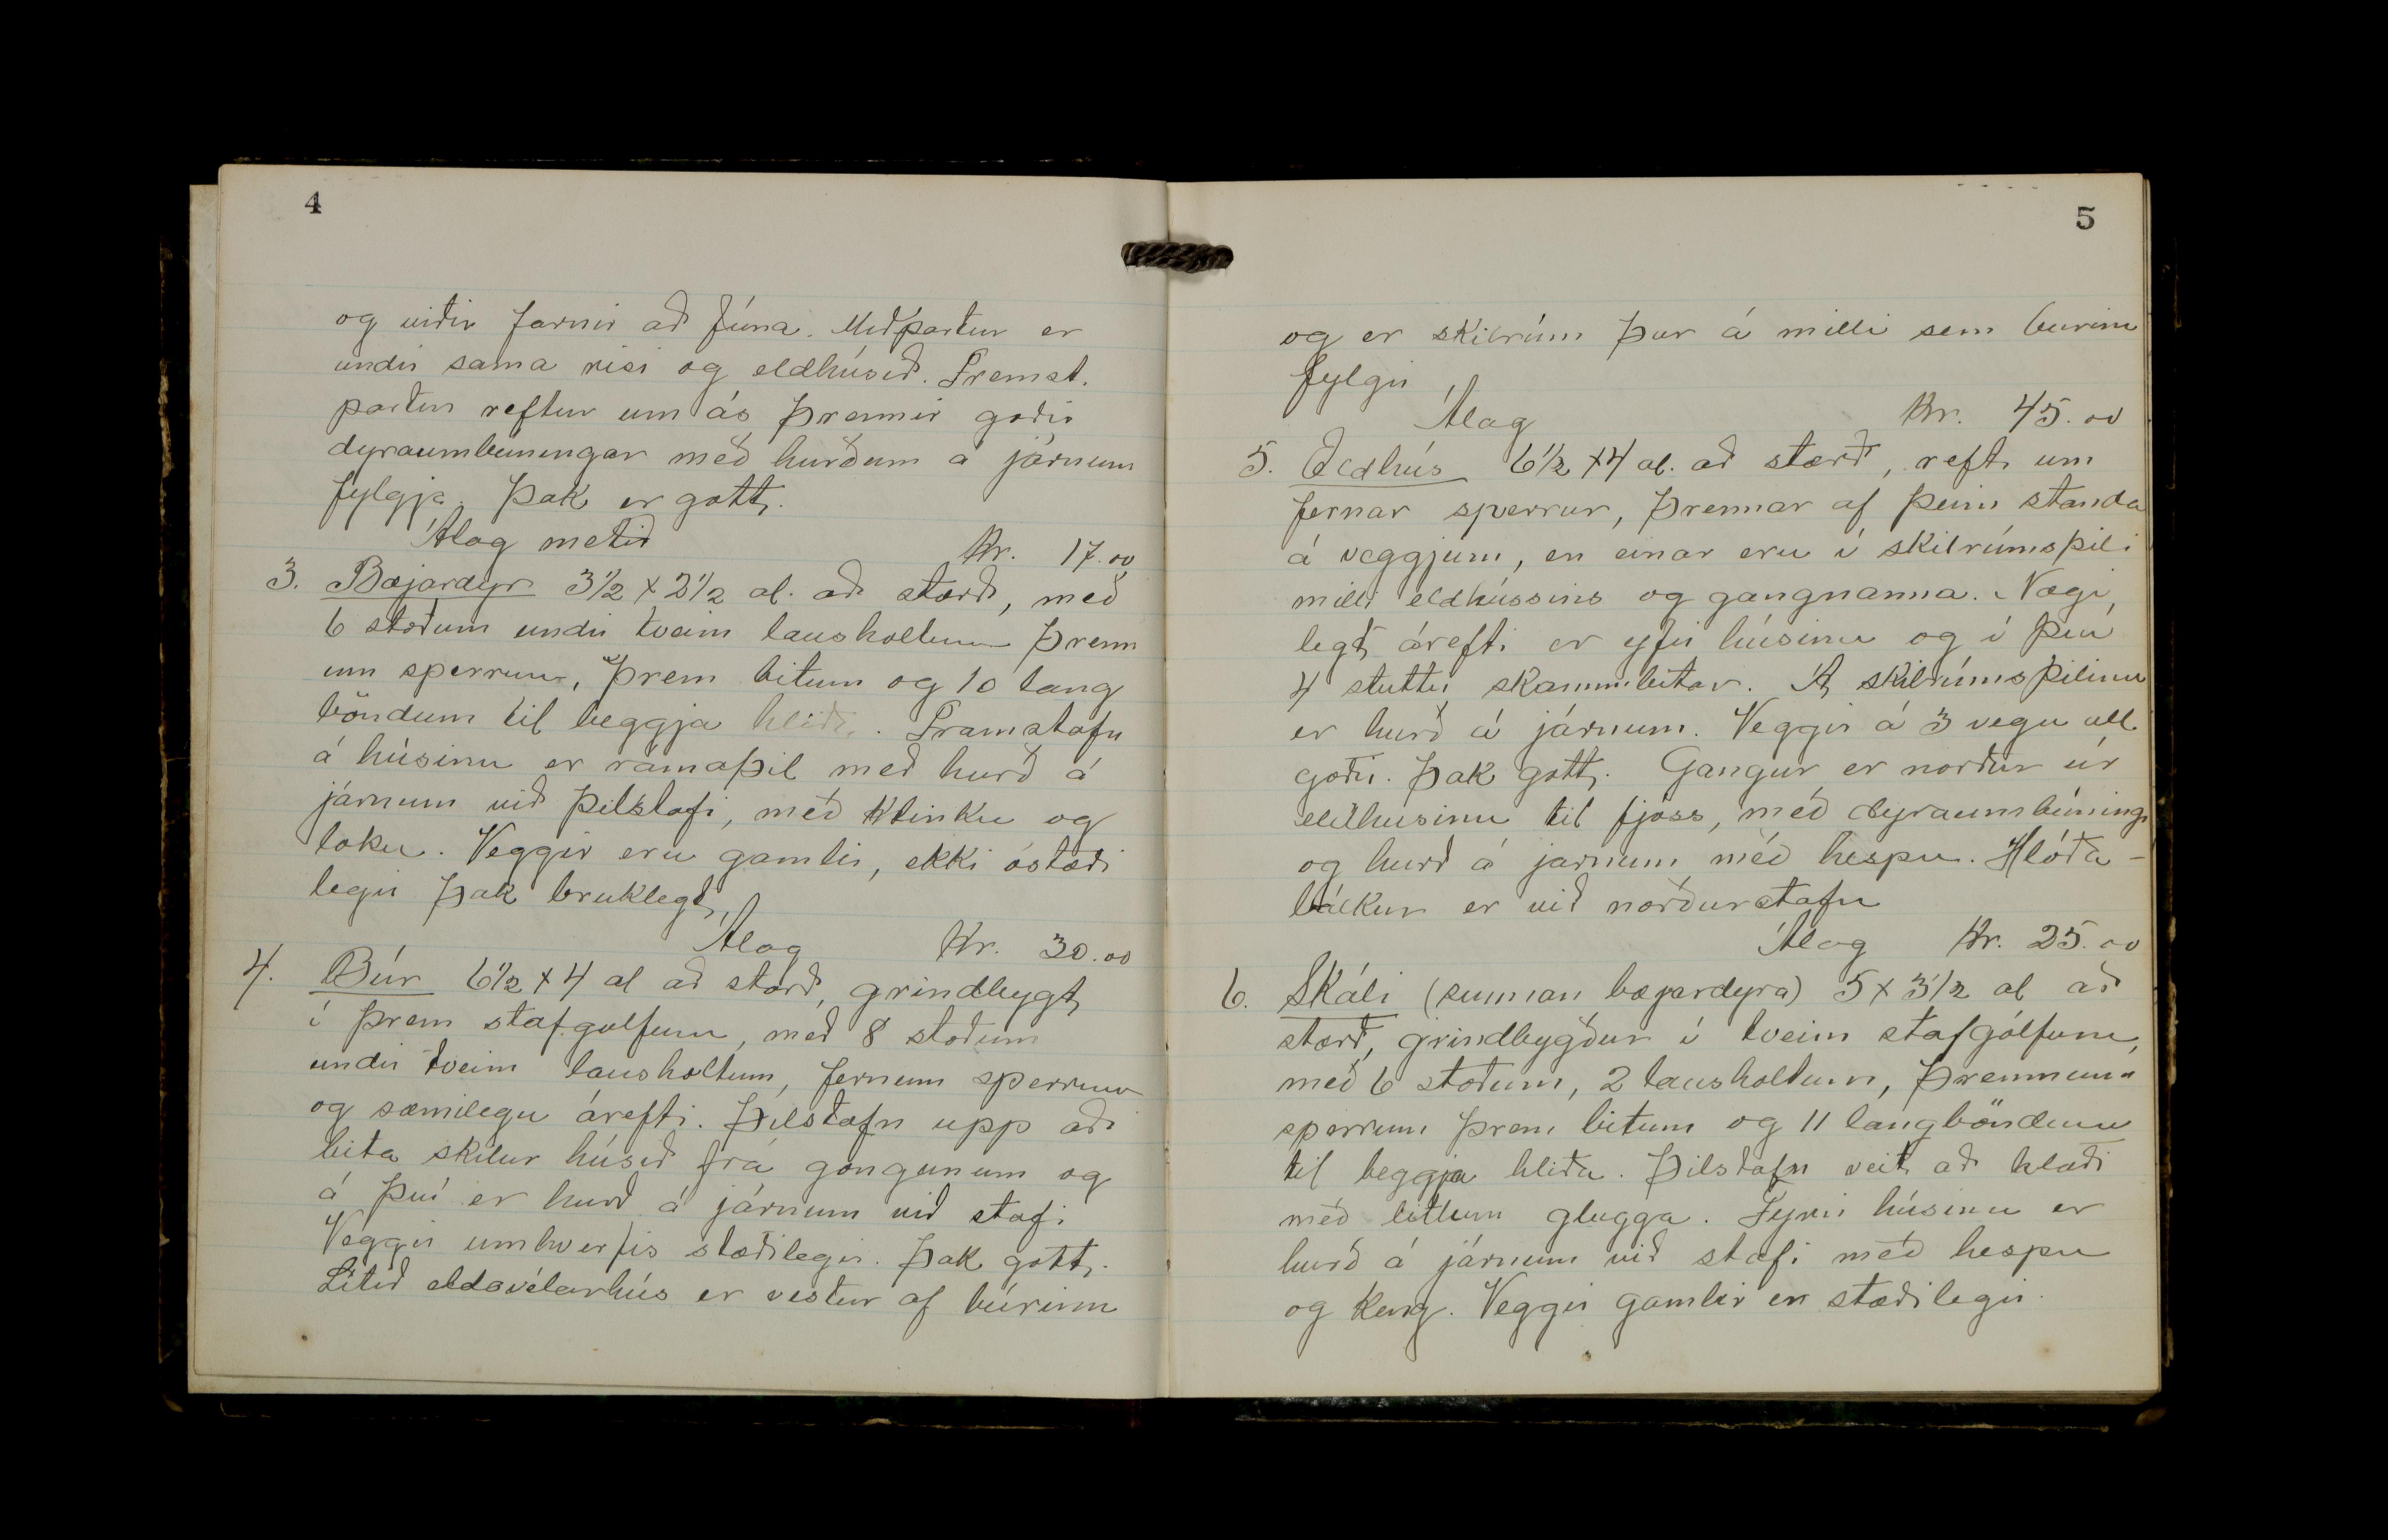 4
og viðir farnir að fúna. Miðpartur er
undir sama risi og eldhúsið. Fremst.
partur reftur um ás þrennir góðir
dyraumbúningar með hurðum á járnum
fylgja. Þak er gott.
Álag metið Kr. 17.00
3. Bæjardyr 3½ x 2½ al. að stærð, með
6 stoðum undir tveim lausholtum þrenn
um sperrum, þrem bitum og 10 lang
böndum til beggja hliða. Framstafn
á húsinu er rámaþil með hurð á
járnum við þilstafi, með klinku og
loku. Veggir eru gamlir, ekki óstæði
legir Þak bruklegt,
Álag Kr. 30.00
4. Búr 6½ x 4 al að stærð, grindbygt
í þrem stafgólfum, með 8 stoðum
undir tveim lausholtum, fernum sperrum
og sæmilegu árefti. Þilstafn upp að
bita skilur húsið frá göngunum og
á því er hurð á járnum við stafi
Veggir umhverfis stæðilegir. Þak gott.
Lítið eldavélarhús er vestur af búrinu
5
og er skilrúm þar á milli sem búrinu
fylgir
Álag Kr. 45.00
5. Eldhús 6½ x 4 al. að stærð, reft um
fernar sperrur, þrennar af þeim standa
á veggjum, en einar eru í skilrúmsþili
milli eldhússins og gangnanna. Nægi,
legt árefti er yfir húsinu og í því
4 stuttir skammbitar. Á skilrúmsþilinu
er hurð á járnum. Veggir á 3 vegu all
góðir. Þak gott. Gangur er norður úr
eldhusinu til fjóss, með dyraumbúningi
og hurð á jarnum með hespu. Hlóða-
bálkur er við norðurstafn
Álag Kr. 25.00
6. Skáli (sunnan bæjardyra) 5 x 3½ al að
stærð, grindbygður í tveim stafgólfum,
með 6 stoðum, 2 lausholtum, þrennum
sperrum þrem bitum og 11 langböndum
til beggja hliða. Þilstafn veit að hlaði
með litlum glugga. Fyrir húsinu er
hurð á járnum við stafi með hespu
og keng. Veggir gamlir en stæðilegir.